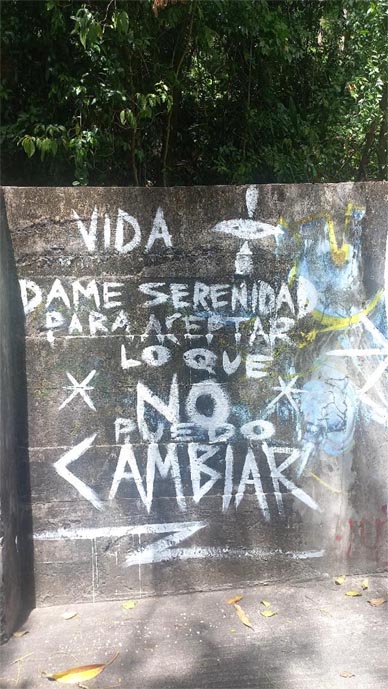 VIDA
DAME SERENIDAD
PARA ACEPTAR
LO QUE
NO
PUEDO
CAMBIAR